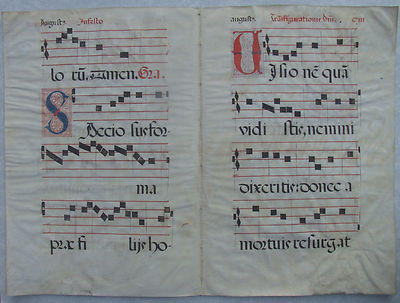 August9. In festo
lo rũ. amen. Gra.
Specio sus for-
ma
præ fi lijs ho-
august9. Trãsfigurationis Dñi.
Visio nẽ quã
vidi stis, nemini
dixeritis: donec a
mortuis resurgat